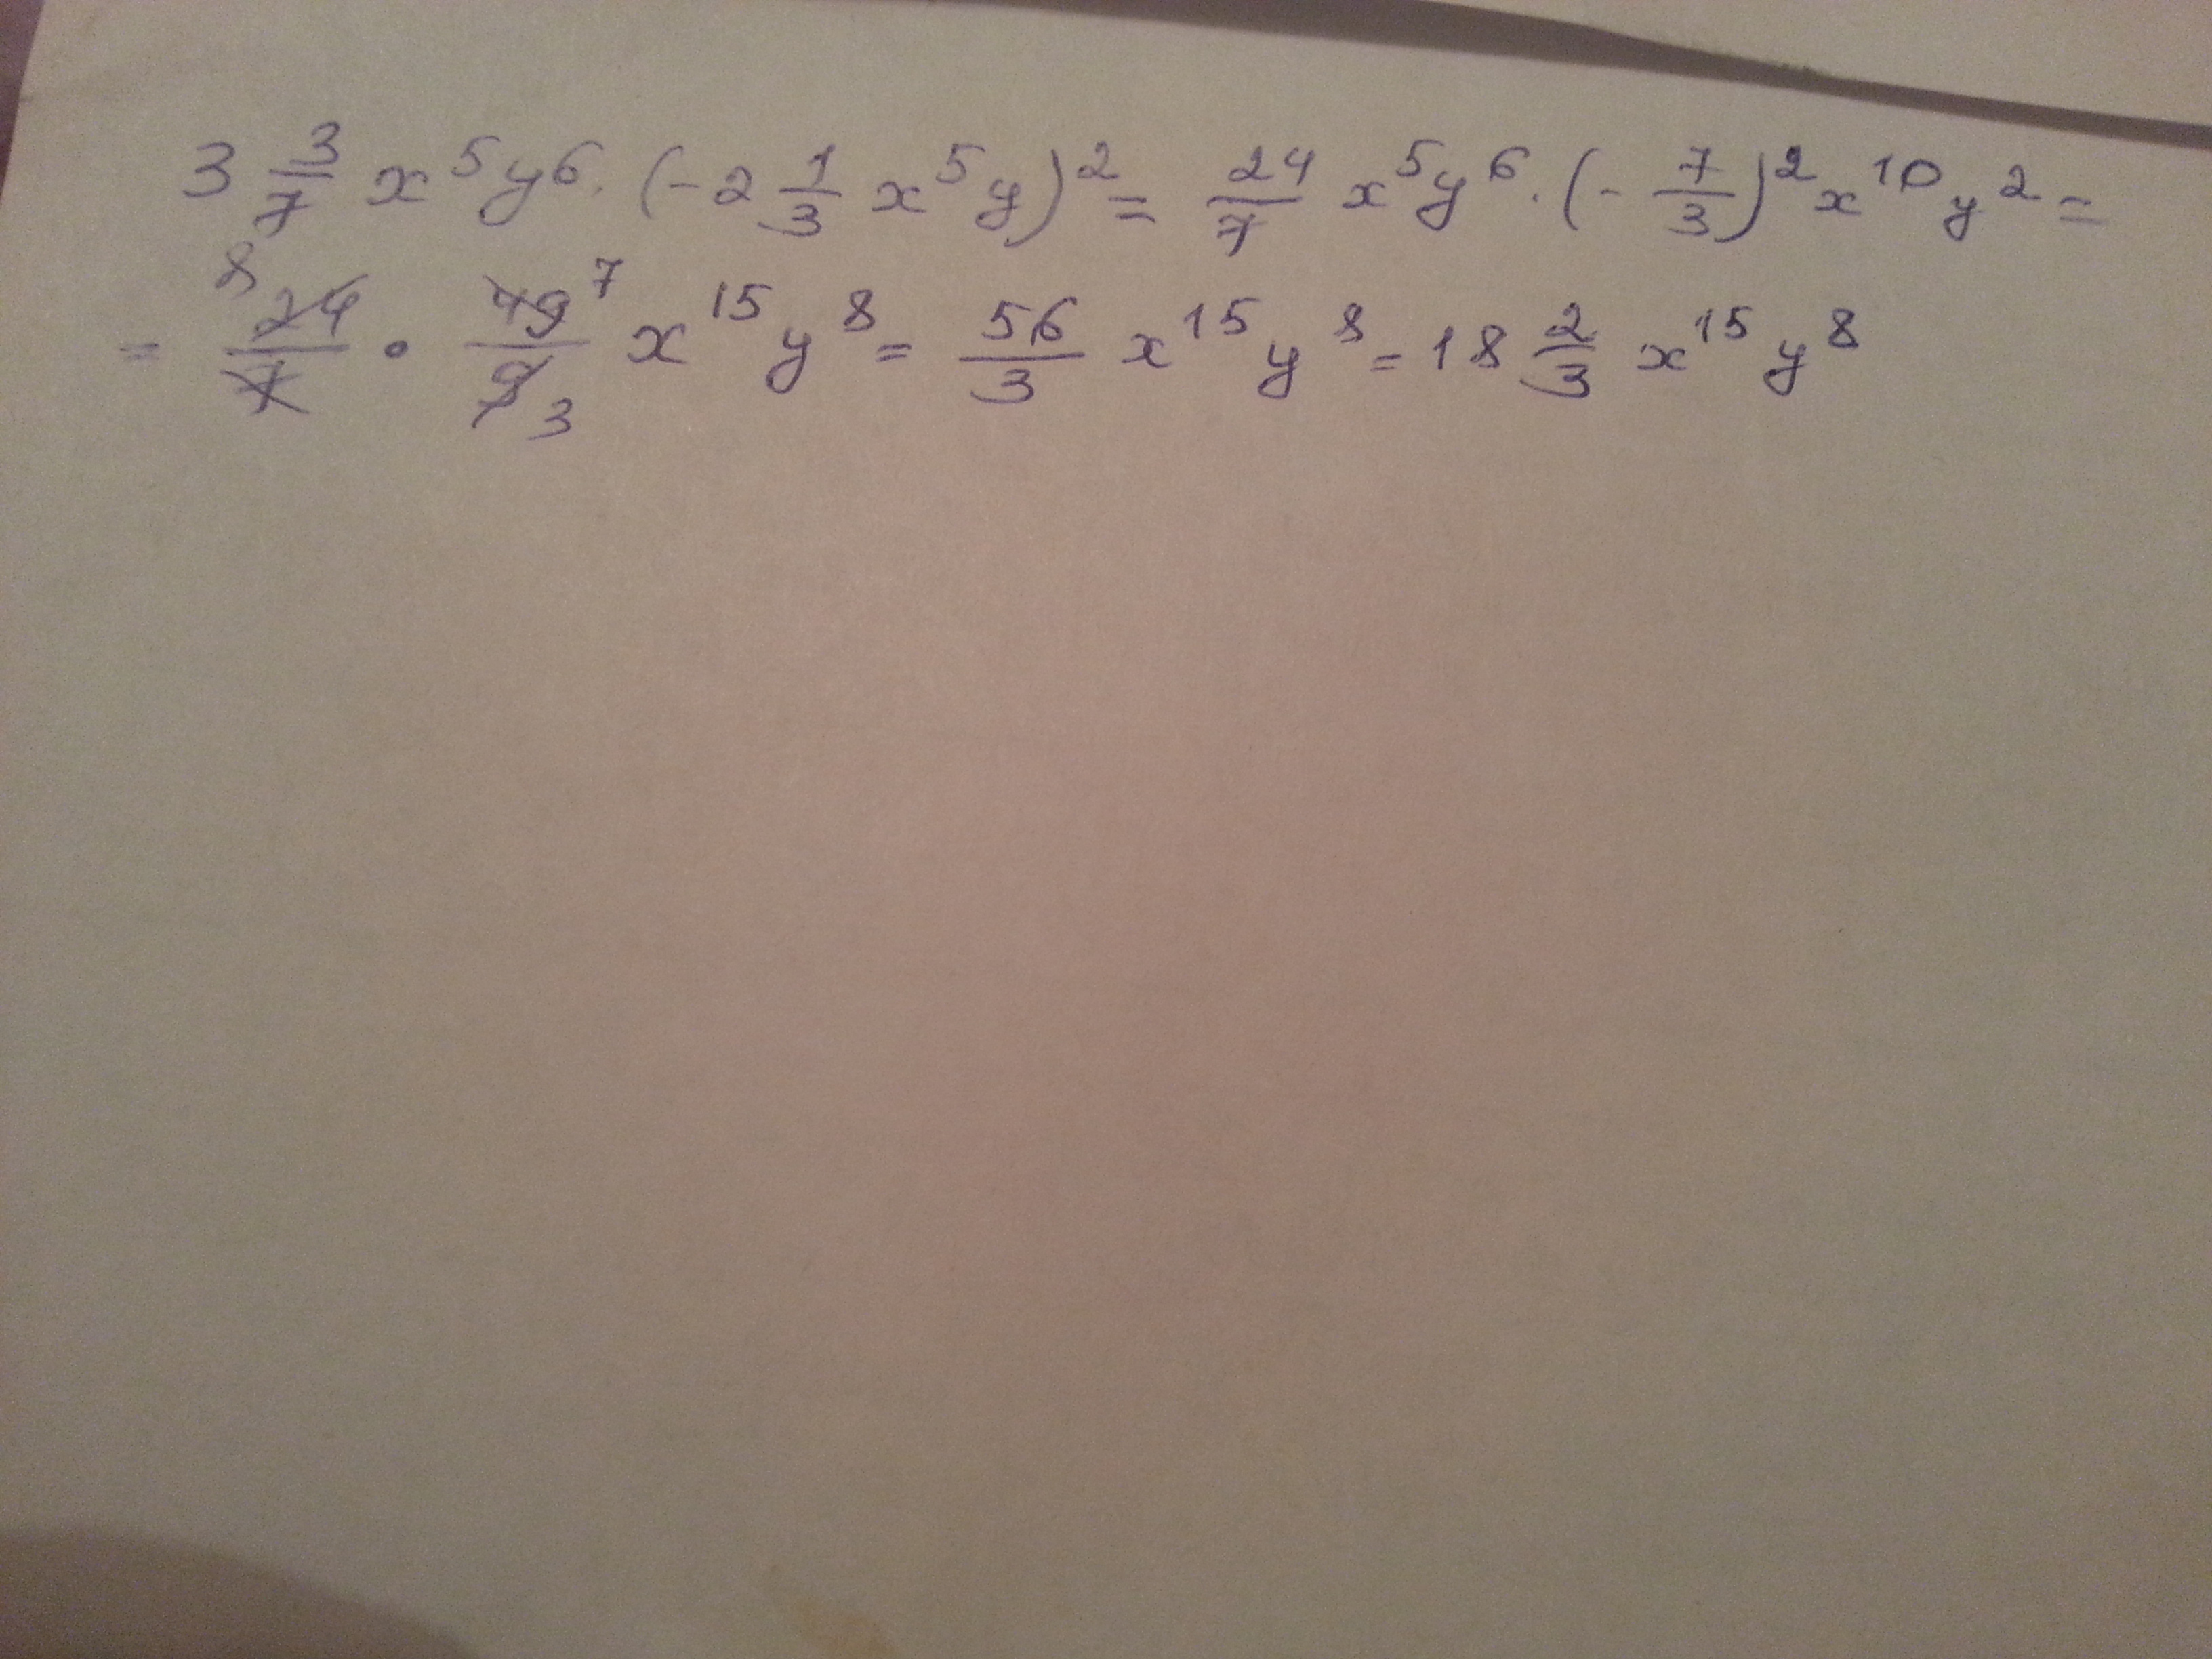 3 3/7 x^5 y^6 · (-2 1/3 x^5 y)^2 = 24/7 x^5 y^6 · (-7/3)^2 x^10 y^2 =
= 8 24/7 · 49 7/9 3 x^15 y^8 = 56/3 x^15 y^8 = 18 2/3 x^15 y^8